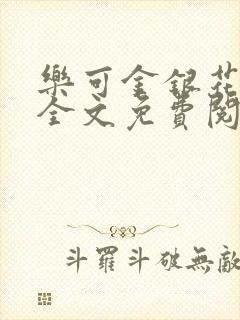 樂可金銀花
全文免費閱
斗羅斗破無敵